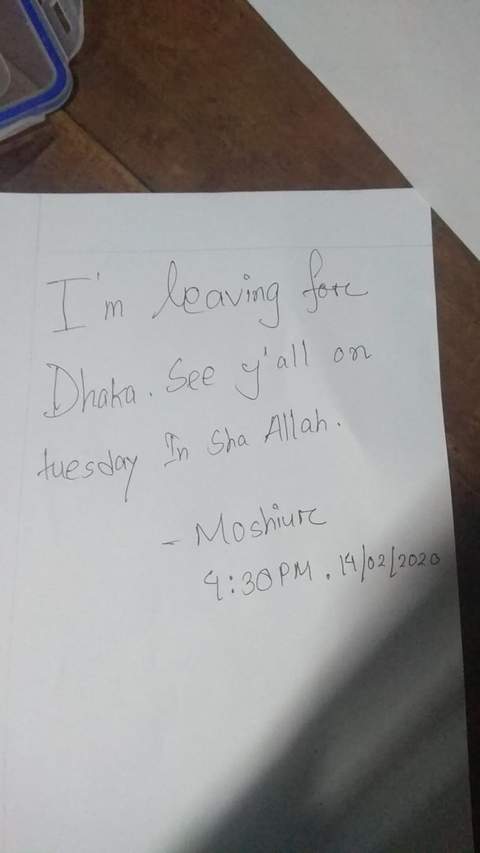 I'm leaving for
Dhaka. See y'all on
tuesday In Sha Allah.
- Moshiur
4:30PM. 14/02/2020